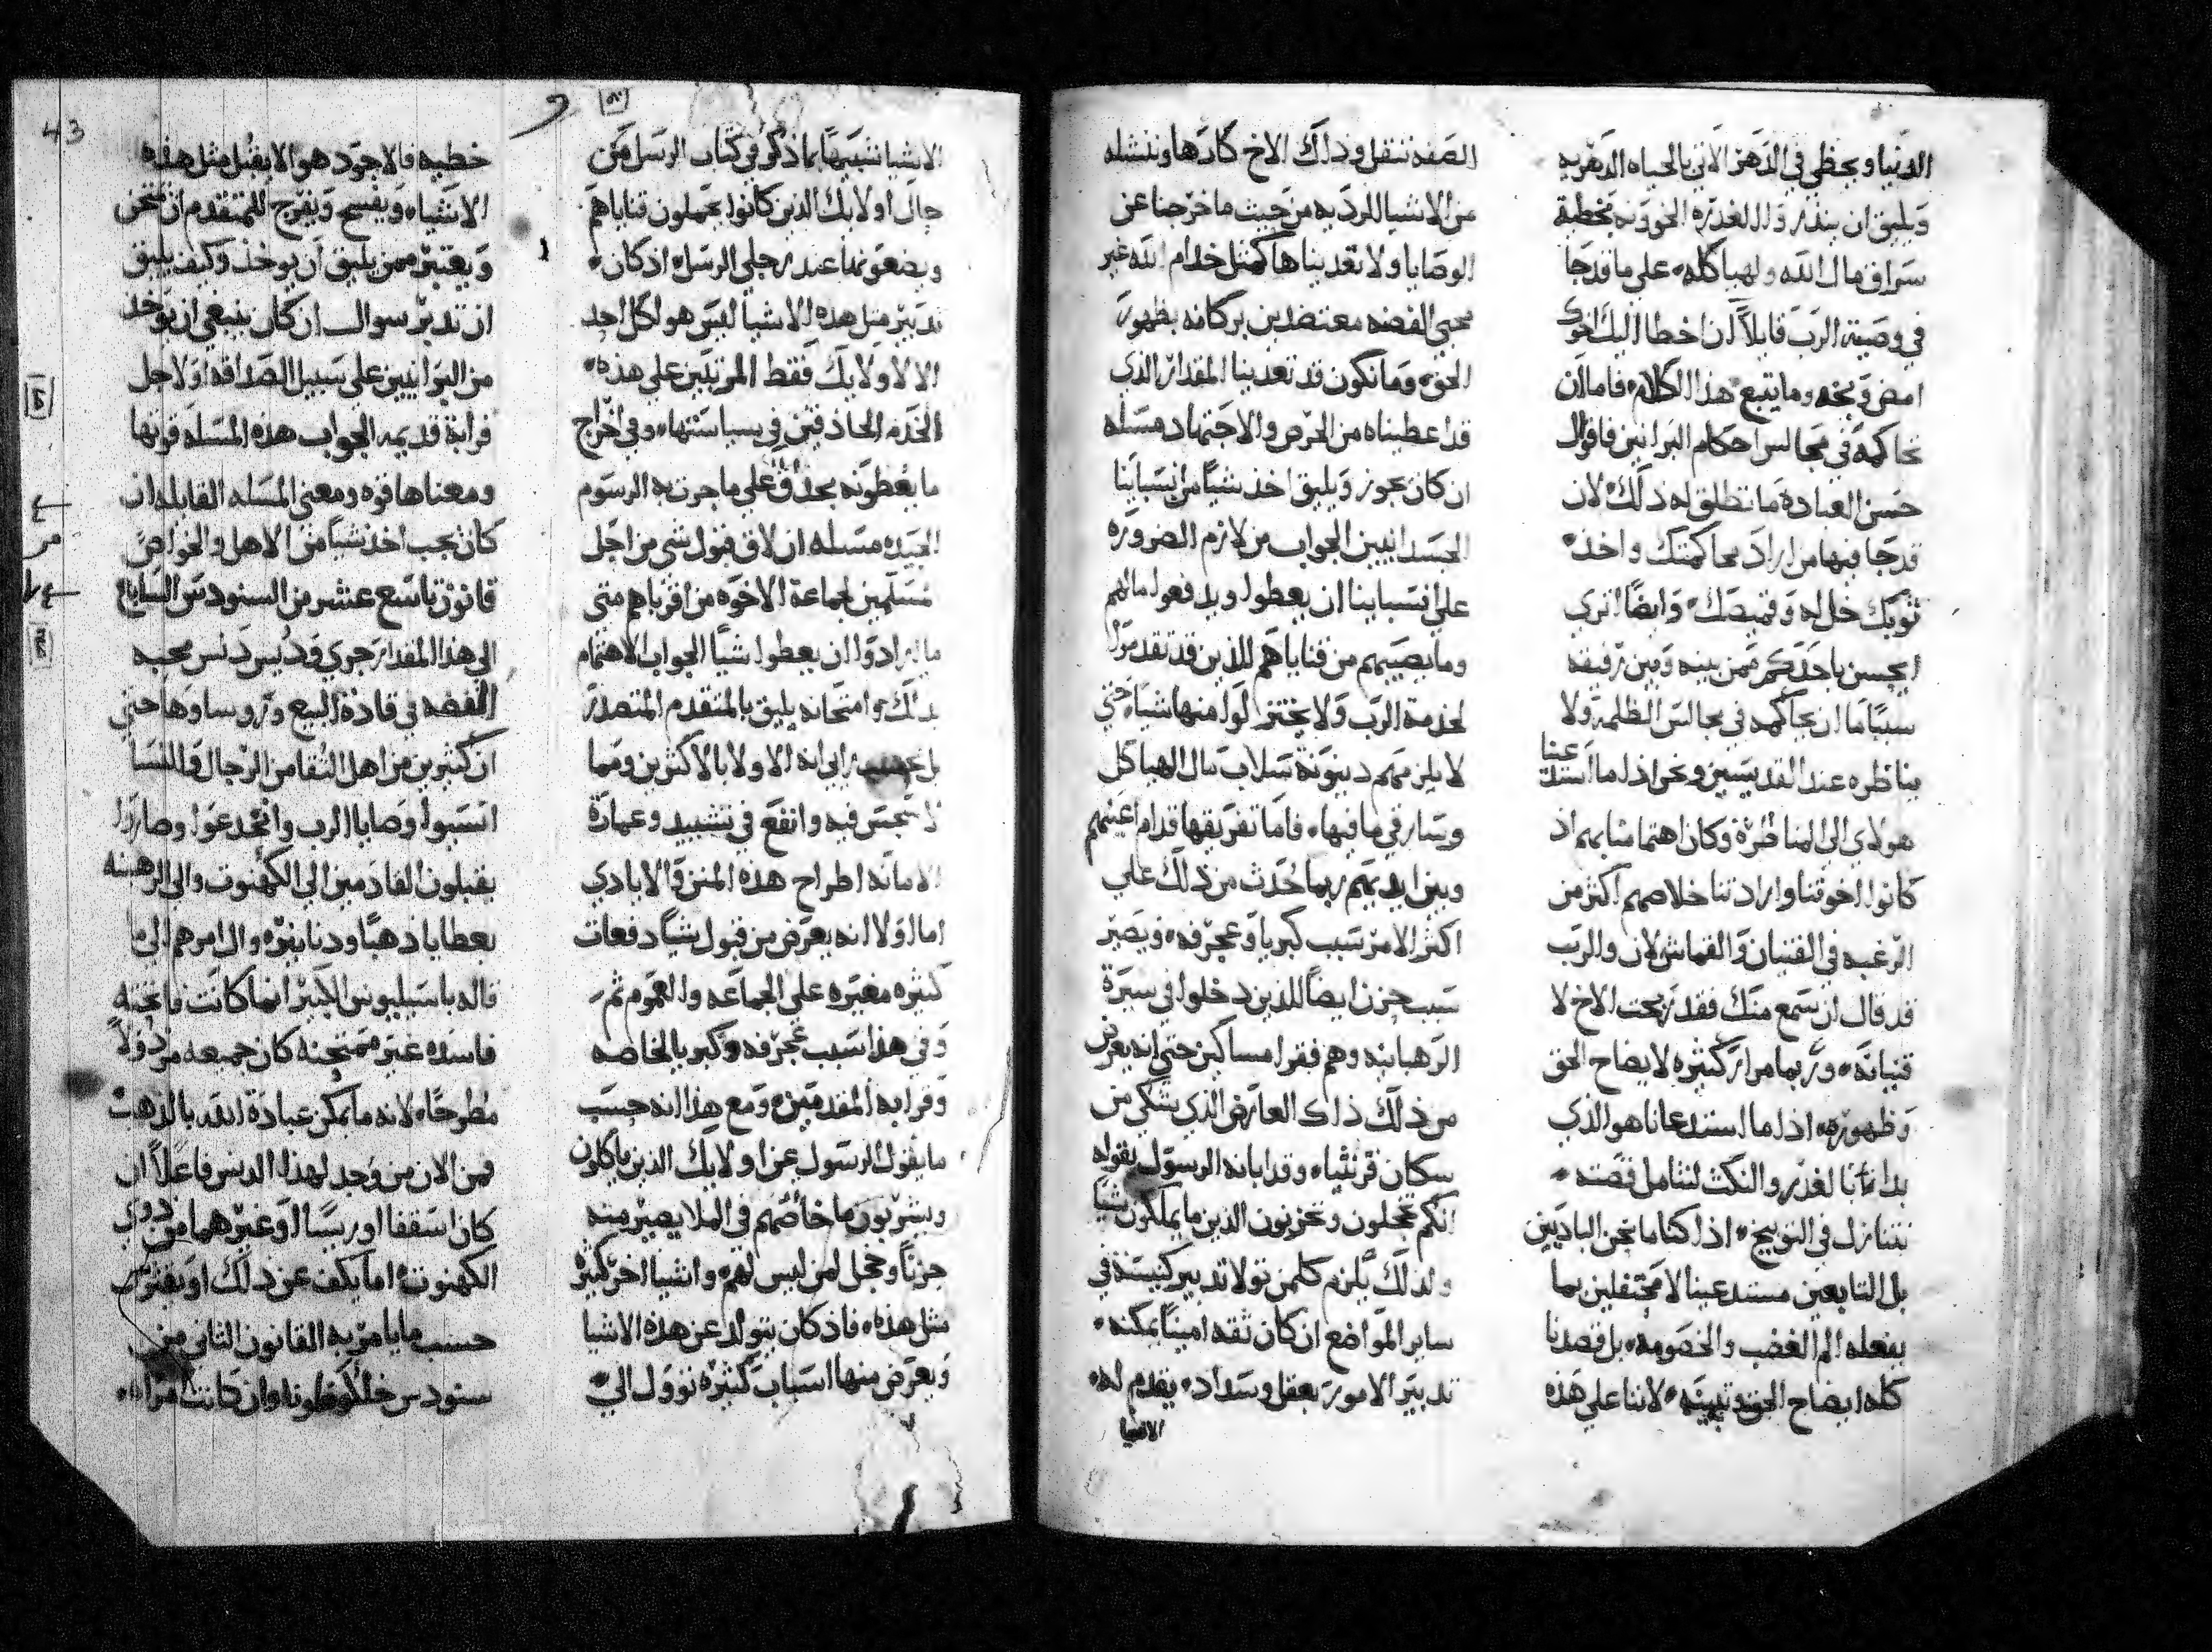 الدنيا ويحظي في الدهر الاتي بالحياه الدهريه
ويليق ان ينذر والالغدره الخوونه بخطية
سراق مال الله ولهياكله، علي ما قد جا
في وصية الرب قايلاً ان اخطا اليك اخوك
امض وبخه وما يتبع هذا الكلام فاما ان
تحاكمه في مجالس احكام البرانيين فاقوال
حسن العبادة ما تطلق له ذلك، لان
قد جا فيها من اراد محاكمتك واخذ
ثوبك خل له وقميصك، وايضاً اتري
ايحسن باحدكم ممن بينه وبين رفيقه
سبباً ما ان يحاكمه في مجالس الظلمة ولا
يناظره عند القديسين ونحن اذا ما استدعينا
هولاي الي المناظرة وكان اهتمامنا بهم اذ
كانوا اخوتنا وارادتنا خلاصهم اكثر من
الرغبه في القنيان والقماش لان والرب
قد قال ان سمع منك فقد ربحت الاخ لا
قنيانه، وربما مرار كثيره لايضاح الحق
وظهوره، اذا ما استدعانا هو الذي
بدانا بالغدر والنكث لنتامل قصته
نتنازل في التوبيخ، اذا كنا ما نحن الباديين
بل التابعين مستدعينا لا محتفلين بما
يفعله الم الغضب والخصومه، بل قصدنا
كله ايضاح الحق وتبينه، لاننا علي هذه
الصفه ننقل وذلك الاخ كارها وننشله
من الاشيا الرديه من حيث ما خرجنا عن
الوصايا ولا تعديناها كمثل خدام الله غير
محبي الفضه معتضدين بركانه بظهور
الحق، وما نكون قد تعدينا المقدار الذي
قد اعطيناه من الحرص والاجتهاد مسله
ان كان يجوز ويليق اخذ شياً من انسباينا
الجسدانيين الجواب من لازم الضروره
علي انسباينا ان يعطوا ويدفعوا مالهم
وما يصيبهم من قناياهم للذين قد تقدموا
لخدمة الرب ولا يختزلوا منها شياً، حتي
لا يلزمهم دينونة سلاب مال الهياكل
وسارقي ما فيها، فاما تفريقها قدام اعينهم
وبين ايديهم ربما حدث من ذلك علي
اكثر الامر سبب كبريا وعجرفه، ويصير
سبب حزن ايضاً للذين دخلوا في سيرة
الرهبانيه وهم فقرا مساكين حتي انه يعرض
من ذلك ذاك العارض الذي يشكي من
سكان قرنثيا، وقد ابانه الرسول بقوله
انكم تخجلون وتحزنون الذين ما يملكون شياً
ولذلك يلزم كلمن تولا تدبير كنيسة في
ساير المواضع ان كان ثقه اميناً يمكنه
تدبير الامور بعقل وسداد، يقدم له
الاشيا
الاشيا تشبيهاً بما ذكر في كتاب الرسل من
حال اولايك الذين كانوا يحملون قناياهم
ويضعونها عند رجلي الرسل، اذ كان
تدبير مثل هذه الاشيا ليس هو لكل احد
الا لاولايك فقط المرتبين علي هذه
الخدم الحاذقين في سياستها، وفي اخراج
ما يعطونه بحذق علي ما جرت به الرسوم
الجيده مسله ان لاق قبول شي من اجل
مسلمين لجماعة الاخوه من اقرباهم متي
ما ارادوا ان يعطوا شياً الجواب الاهتمام
بذلك وامتحانه يليق بالمتقدم المتصدر
بل بحسب رايي انه الاولا بالاكثرين ومما
لا تجس فيه وانفع في تشييد وعمارة
الامانه اطراح هذه المنن والايادي
اما اولا انه يعرض من قبول شياً دفعات
كثيره معيره علي الجماعه والعموم ثم
وفي هذا سبب عجرفه وكبريا لخاصه
وقرابة المقدمين، ومع هذا انه حسب
ما يقول الرسول عن اولايك الذين ياكلون
ويشربون ما خاصهم في الملا يصير منه
حزناً وخجل لمن ليس لهم، واشيا اخر كثيره
مثل هذه، فاذ كان يتولد عن هذه الاشيا
ويعرض منها اسباب كثيره تؤول الي
43
خطيه فالاجود هو الا يقبل مثل هذه
الاشيا، ويفسح ويفرج للمتقدم ان يمتحن
ويعتبر ممن يليق ان يوخذ وكيف يليق
ان تدبر سوال ان كان ينبغي ان يوخذ
من البرانيين علي سبيل الصداقه او لاجل
قرابة قديمه الجواب هذه المسله قوتها
ومعناها قوه ومعني المسله القايله ان
كان يجب اخذ شياً من الاهل والخواص
قانون تاسع عشر من السنودس السابع
الي هذا المقدار جري ودبيس دنس محبه
الفضه في قادة البيع وروساوها حتي
ان كثيرين من اهل التقا من الرجال والنسا
انسيوا وصايا الرب وانخدعوا وصاروا
يقبلون القادمين الي الكهنوت والي الرهبنه
بعطايا ذهباً ودنانيره وال امرهم الي ما
قاله باسيليوس الكبير انما كانت فاتحته
فاسده غير ممتحنه كان جميعه مرذولاً
مطروحاً، لانه ما يمكن عبادة الله بالذهب
فمن الان من وجد لهذا الدنس فاعلاً ان
كان اسقفا او ريساً او غيرهما من ذوي
الكهنوت، اما يكف عن ذلك او يفترز
حسب ما يامر به القانون الثاني من
سنودس خلكوطونا، وان كانت مراه